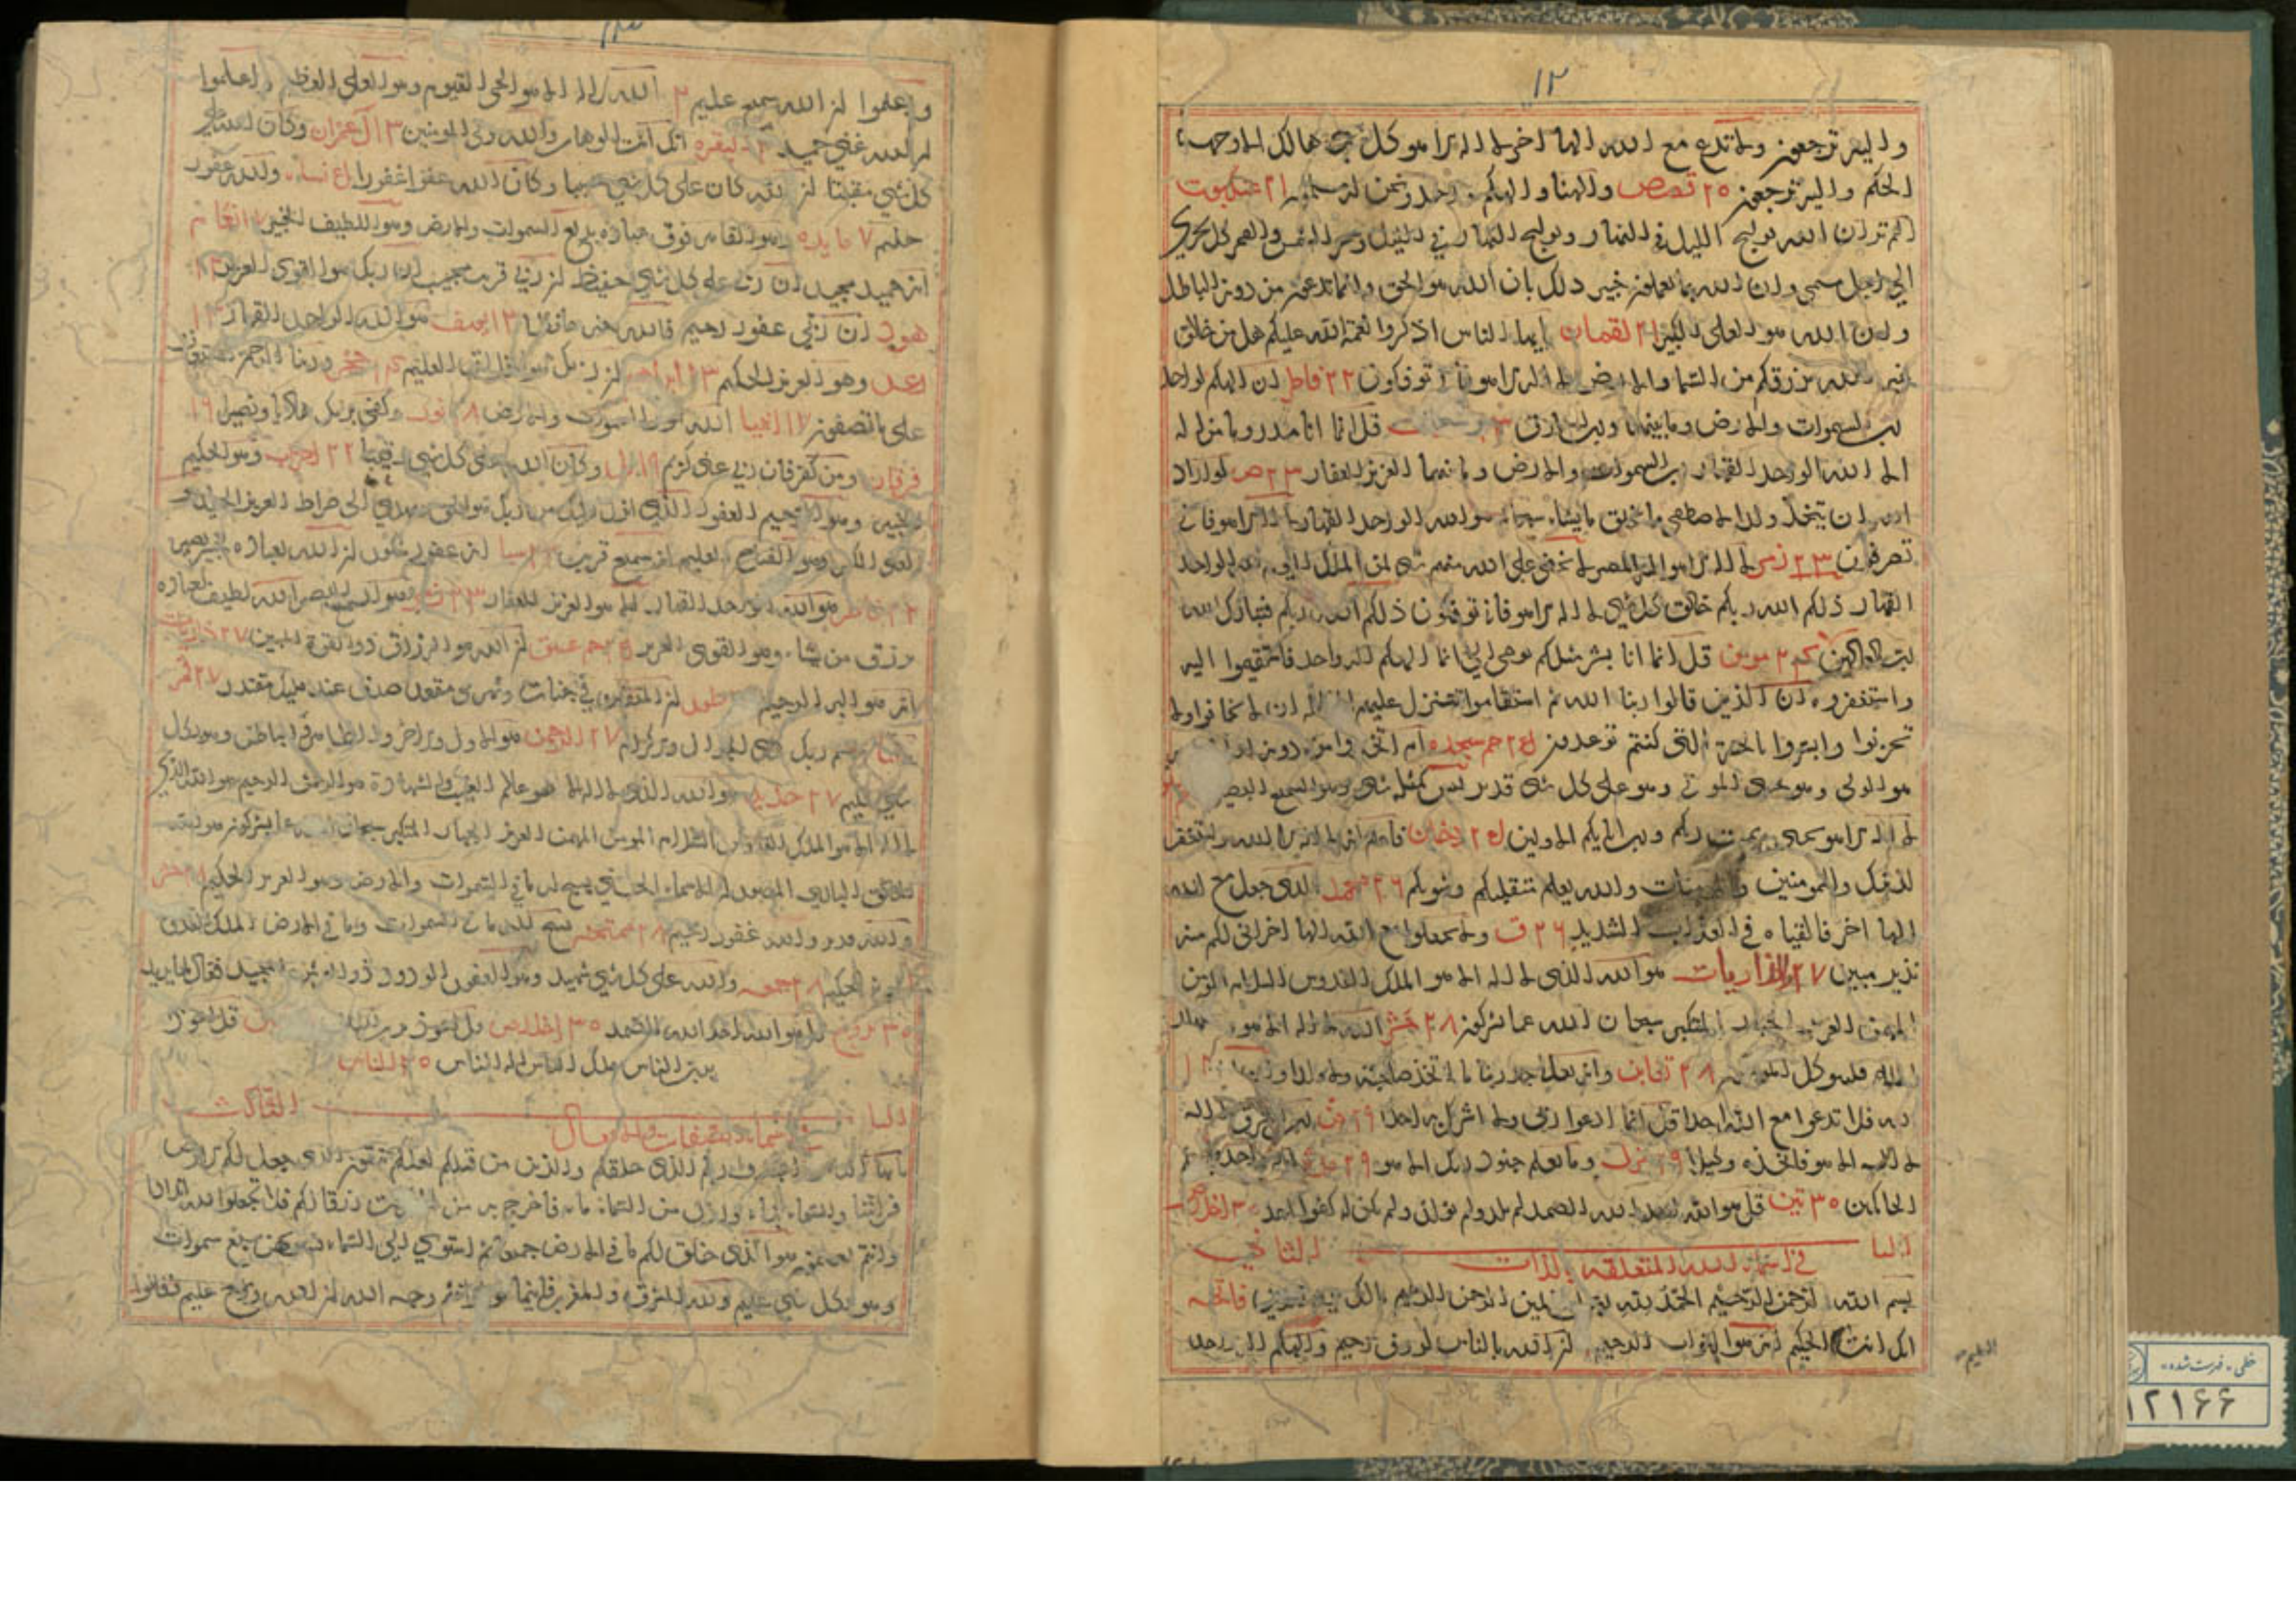 ١٢
واليه ترجعون ولا تدع مع الله الها اخر لا اله الا هو كل شئ هالك الا وجهه
الحكم واليه ترجعون ٢٠ قصص والهنا والهكم واحد ونحن له مسلمون ٢١ عنكبوت
الم تر ان الله يولج الليل في النهار ويولج النهار في الليل وسخر الشمس والقمر كل يجري
الي اجل مسمي وان الله بما تعملون خبير ذلك بان الله هو الحق وانما تدعون من دونه الباطل
وان الله هو العلي الكبير ٢١ لقمان يايها الناس اذكروا نعمة الله عليكم هل من خالق
غير الله يرزقكم من السما والارض لا اله الا هو فاني توفكون ٢٢ فاطر ان الهكم لواحد
رب السموات والارض وما بينهما ورب المشارق قل انما انا منذر وما من اله
الا الله الواحد القهار رب السموات والارض وما بينهما العزيز الغفار ٢٣ ص لو اراد
الله ان يتخذ ولدا لاصطفي مما يخلق ما يشاء سبحانه هو الله الواحد القهار لا اله الا هو فاني
تصرفون ٢٣ زمر لا اله الا هو اليه المصير لا يخفي علي الله منهم شئ لمن الملك اليوم لله الواحد
القهار ذلكم الله ربكم خالق كل شئ لا اله الا هو فاني توفكون ذلكم الله ربكم فتبارك الله
رب العالمين ٢٤ مومن قل انما انا بشر مثلكم يوحي الي انما الهكم اله واحد فاستقيموا اليه
واستغفروه ان الذين قالوا ربنا الله ثم استقاموا تتنزل عليهم الا تخافوا ولا
تحزنوا وابشروا بالجنة التي كنتم توعدون ٢٤ حم سجده ام اتخذوا من دونه
هو الولي وهو يحيي الموتي وهو علي كل شئ قدير ليس كمثله شئ وهو السميع البصير
لا اله الا هو يحيي ويميت ربكم ورب ابائكم الاولين ٢٥ دخان فاعلم انه لا اله الا الله واستغفر
لذنبك وللمومنين والمومنات والله يعلم متقلبكم ومثويكم ٢٦ محمد الذي جعل مع الله
الها اخر فالقياه في العذاب الشديد ٢٦ ق ولا تجعلوا مع الله الها اخر اني لكم منه
نذير مبين ٢٧ والذاريات هو الله الذي لا اله الا هو الملك القدوس السلام المومن
المهيمن العزيز الجبار المتكبر سبحان الله عما يشركون ٢٨ حشر الله لا اله الا هو وعلي
الله فليتوكل المومنون ٢٨ تغابن وانه تعالي جد ربنا ما اتخذ صاحبة ولا ولدا
لله فلا تدعوا مع الله احدا قل انما ادعوا ربي ولا اشرك به احدا ٢٩ جن رب المشرق
لا اله الا هو فاتخذه وكيلا ٢٩ مزمل وما يعلم جنود ربك الا هو ٢٩ مدثر
الحاكمين ٣٠ تين قل هو الله احد الله الصمد لم يلد ولم يولد ولم يكن له كفوا احد ٣٠ اخلاص
الباب الثاني
في اسماء الله المتعلقه بالذات
بسم الله الرحمن الرحيم الحمد لله رب العالمين الرحمن الرحيم مالك يوم الدين فاتحه
انك انت العليم الحكيم انه هو التواب الرحيم ان الله بالناس لروف رحيم والهكم اله واحد
واعلموا ان الله سميع عليم ٢ الله لا اله الا هو الحي القيوم وهو العلي العظيم واعلموا
ان الله غني حميد ٣ البقره انك انت الوهاب والله ولي المومنين ٣ ال عمران وكان الله علي
كل شئ مقيتا ان الله كان علي كل شئ حسيبا وكان الله عفوا غفورا نساء والله غفور
حليم ٧ مايده وهو القاهر فوق عباده بديع السموات والارض وهو اللطيف الخبير ٧ انعام
انه حميد مجيد ان ربي علي كل شئ حفيظ ان ربي قريب مجيب ان ربك هو القوي العزيز ١٢
هود ان ربي غفور رحيم فالله خير حافظا ١٣ يوسف هو الله الواحد القهار ١٣
رعد وهو العزيز الحكيم ١٣ ابراهيم ان ربك هو الخلاق العليم حجر وربنا الرحمن المستعان
علي ما تصفون ١٧ انبيا الله نور السموات والارض ١٨ نور وكفي بربك هاديا ونصيرا ١٩
فرقان ومن كفر فان ربي غني كريم ١٩ نمل وكان الله علي كل شئ رقيبا ٢٢ احزاب وهو الحكيم
الخبير وهو الرحيم الغفور الذي انزل اليك من ربك هو الحق ويهدي الي صراط العزيز الحميد
العلي الكبير وهو الفتاح العليم انه سميع قريب سبا انه غفور شكور ان الله بعباده لخبير بصير
٢٢ فاطر هو الله الواحد القهار الا هو العزيز الغفار السميع البصير الله لطيف بعباده
يرزق من يشاء وهو القوي العزيز ٢٥ حم عسق ان الله هو الرزاق ذو القوة المتين ٢٧ ذاريات
انه هو البر الرحيم طور ان المتقين في جنات ونهر في مقعد صدق عند مليك مقتدر ٢٧ قمر
تبارك اسم ربك ذي الجلال والاكرام ٢٧ الرحمن هو الاول والاخر والظاهر والباطن وهو بكل
شئ عليم ٢٧ حديد هو الله الذي لا اله الا هو عالم الغيب والشهادة هو الرحمن الرحيم هو الله الذي
لا اله الا هو الملك القدوس السلام المومن المهيمن العزيز الجبار المتكبر سبحان الله عما يشركون هو الله
الخالق الباري المصور له الاسماء الحسني يسبح له ما في السموات والارض وهو العزيز الحكيم ٢٨ حشر
والله قدير والله غفور رحيم ٢٨ ممتحنه يسبح لله ما في السموات وما في الارض الملك القدوس
العزيز الحكيم ٢٨ جمعه والله علي كل شئ شهيد وهو الغفور الودود ذو العرش المجيد فعال لما يريد
٣٠ بروج قل هو الله احد الله الصمد ٣٠ اخلاص قل اعوذ برب الفلق قل اعوذ
برب الناس ملك الناس اله الناس ٣٠ الناس
الباب الثالث
في اسمائه بصفات والافعال
يا ايها الناس اعبدوا ربكم الذي خلقكم والذين من قبلكم لعلكم تتقون الذي جعل لكم الارض
فراشا والسماء بناء وانزل من السماء ماء فاخرج به من الثمرات رزقا لكم فلا تجعلوا لله اندادا
وانتم تعلمون هو الذي خلق لكم ما في الارض جميعا ثم استوي الي السماء فسويهن سبع سموات
وهو بكل شئ عليم ولله المشرق والمغرب فاينما تولوا فثم وجه الله ان الله واسع عليم
خطی - فهرست شده
١٢١۶۶